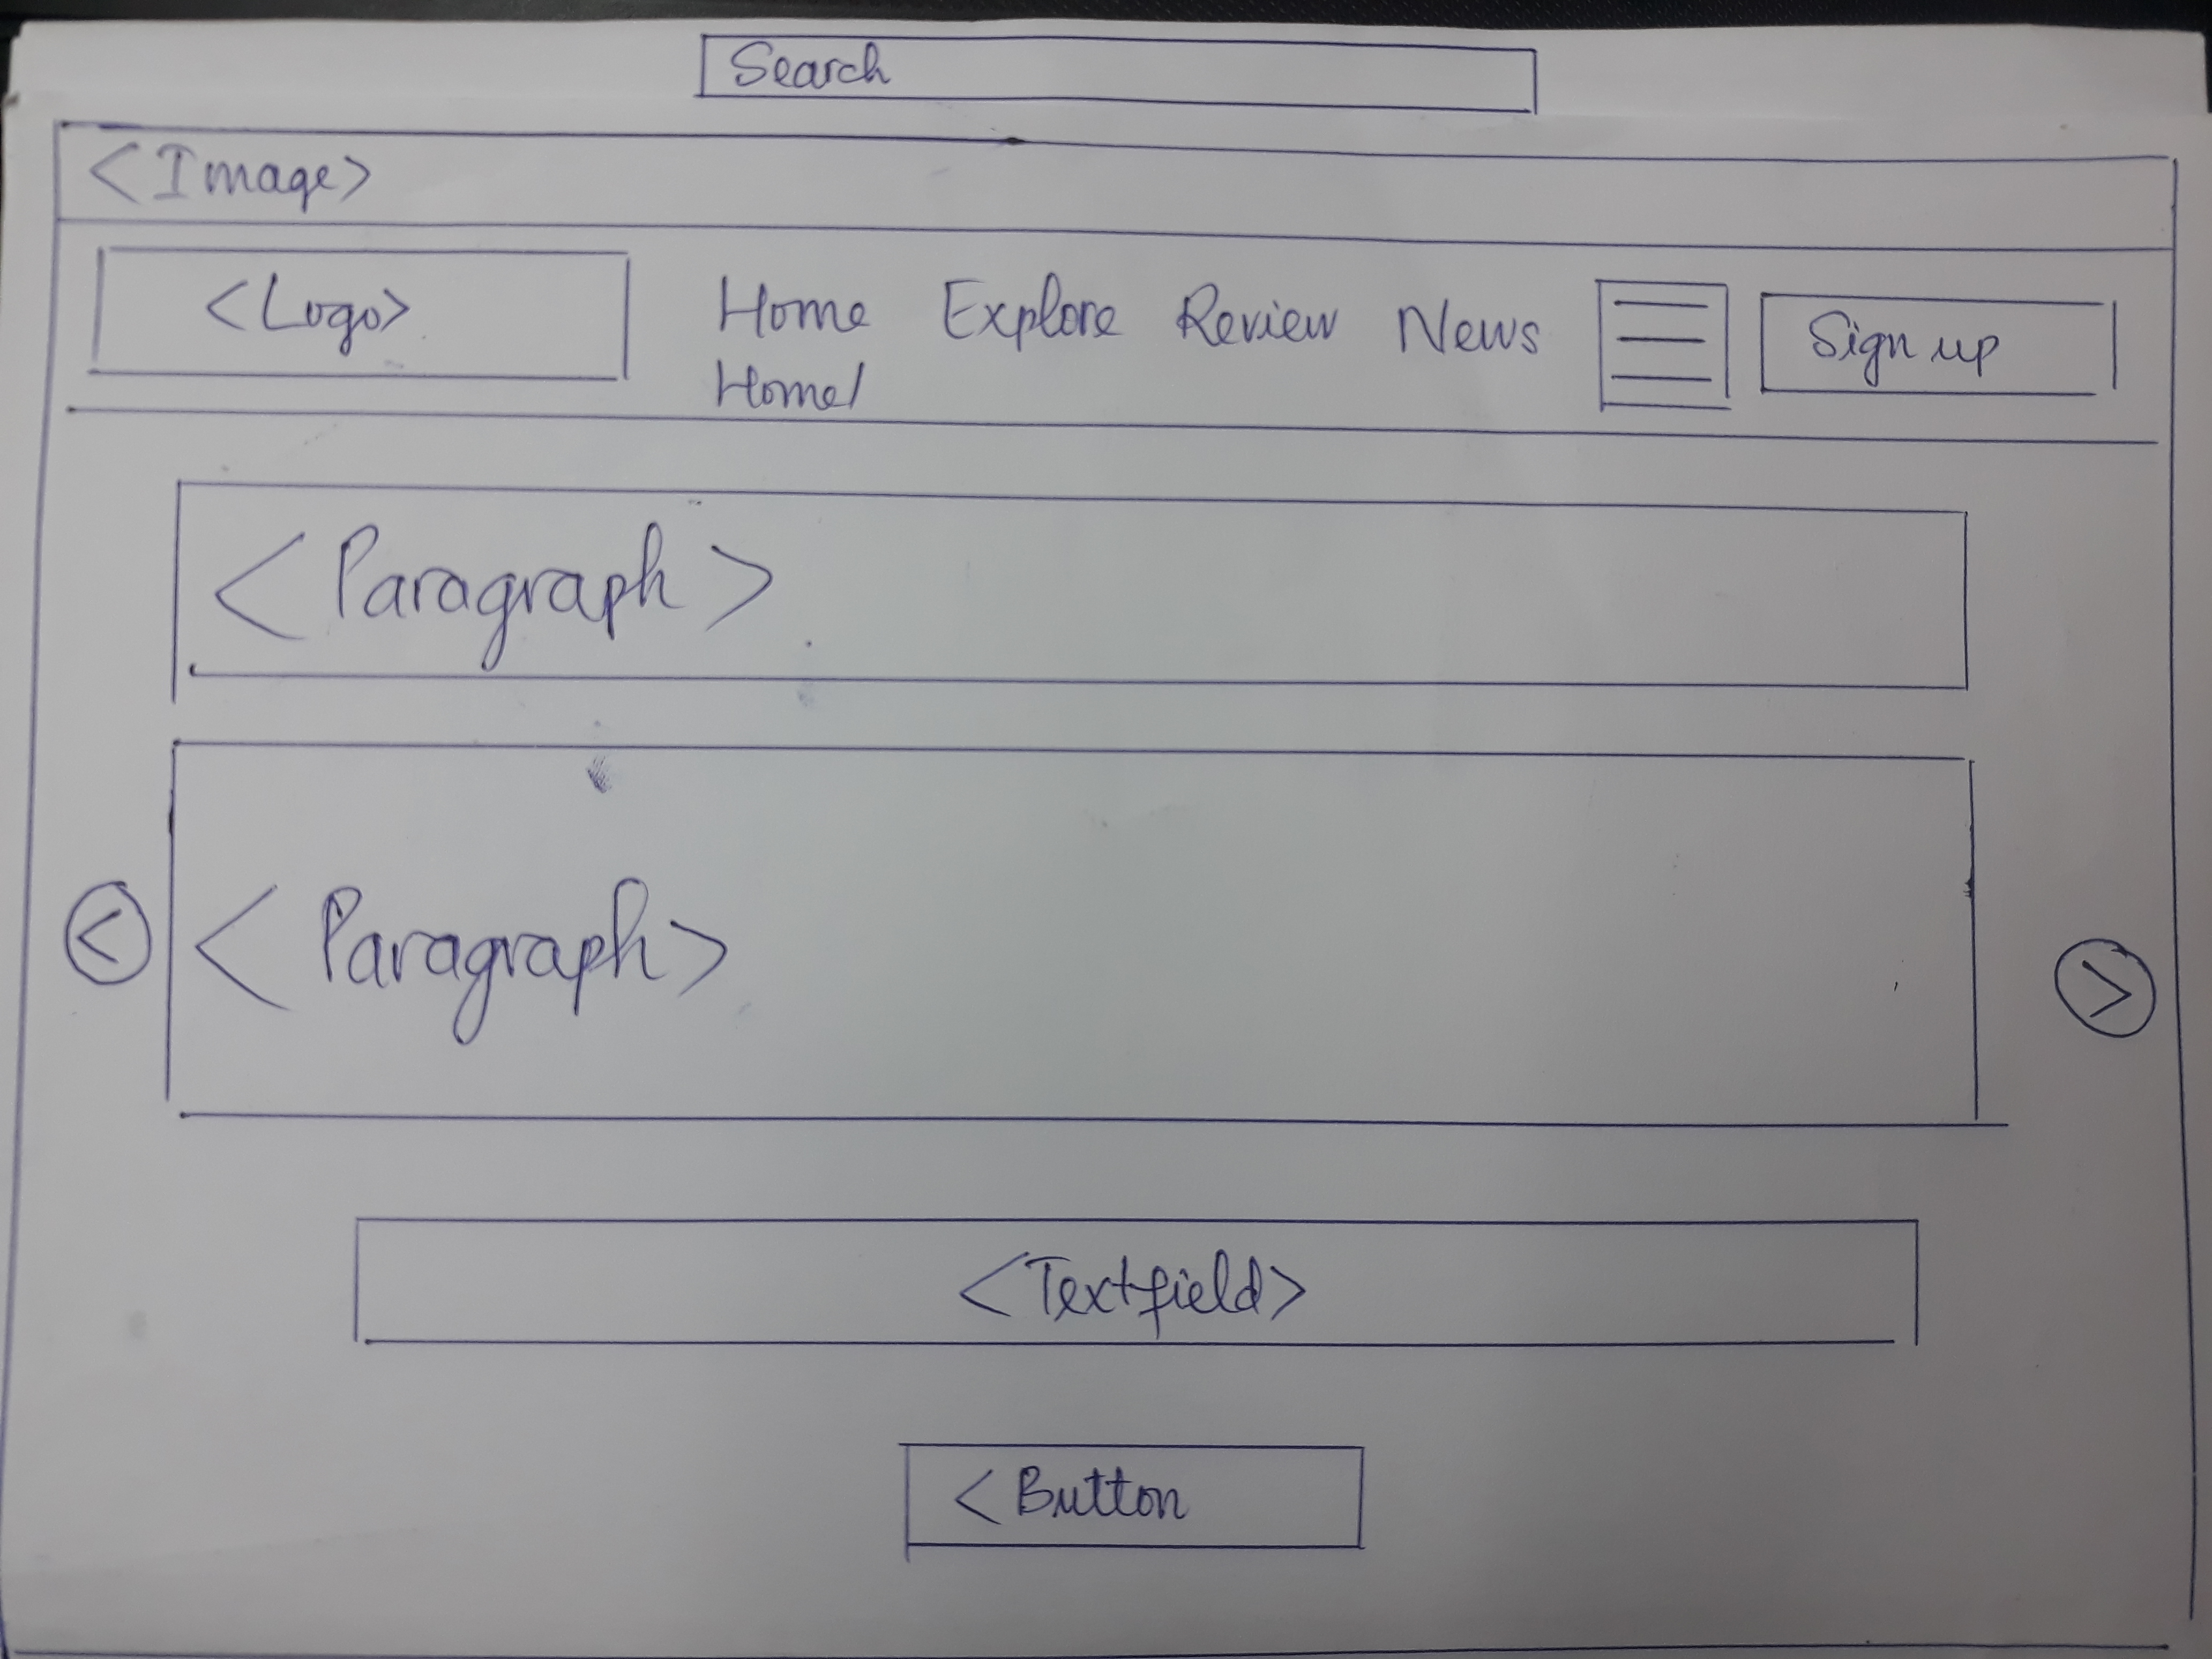 Search
<Image>
<Logo> Home Explore Review News Sign up
Home/
<Paragraph>
< <Paragraph> >
<Textfield>
<Button